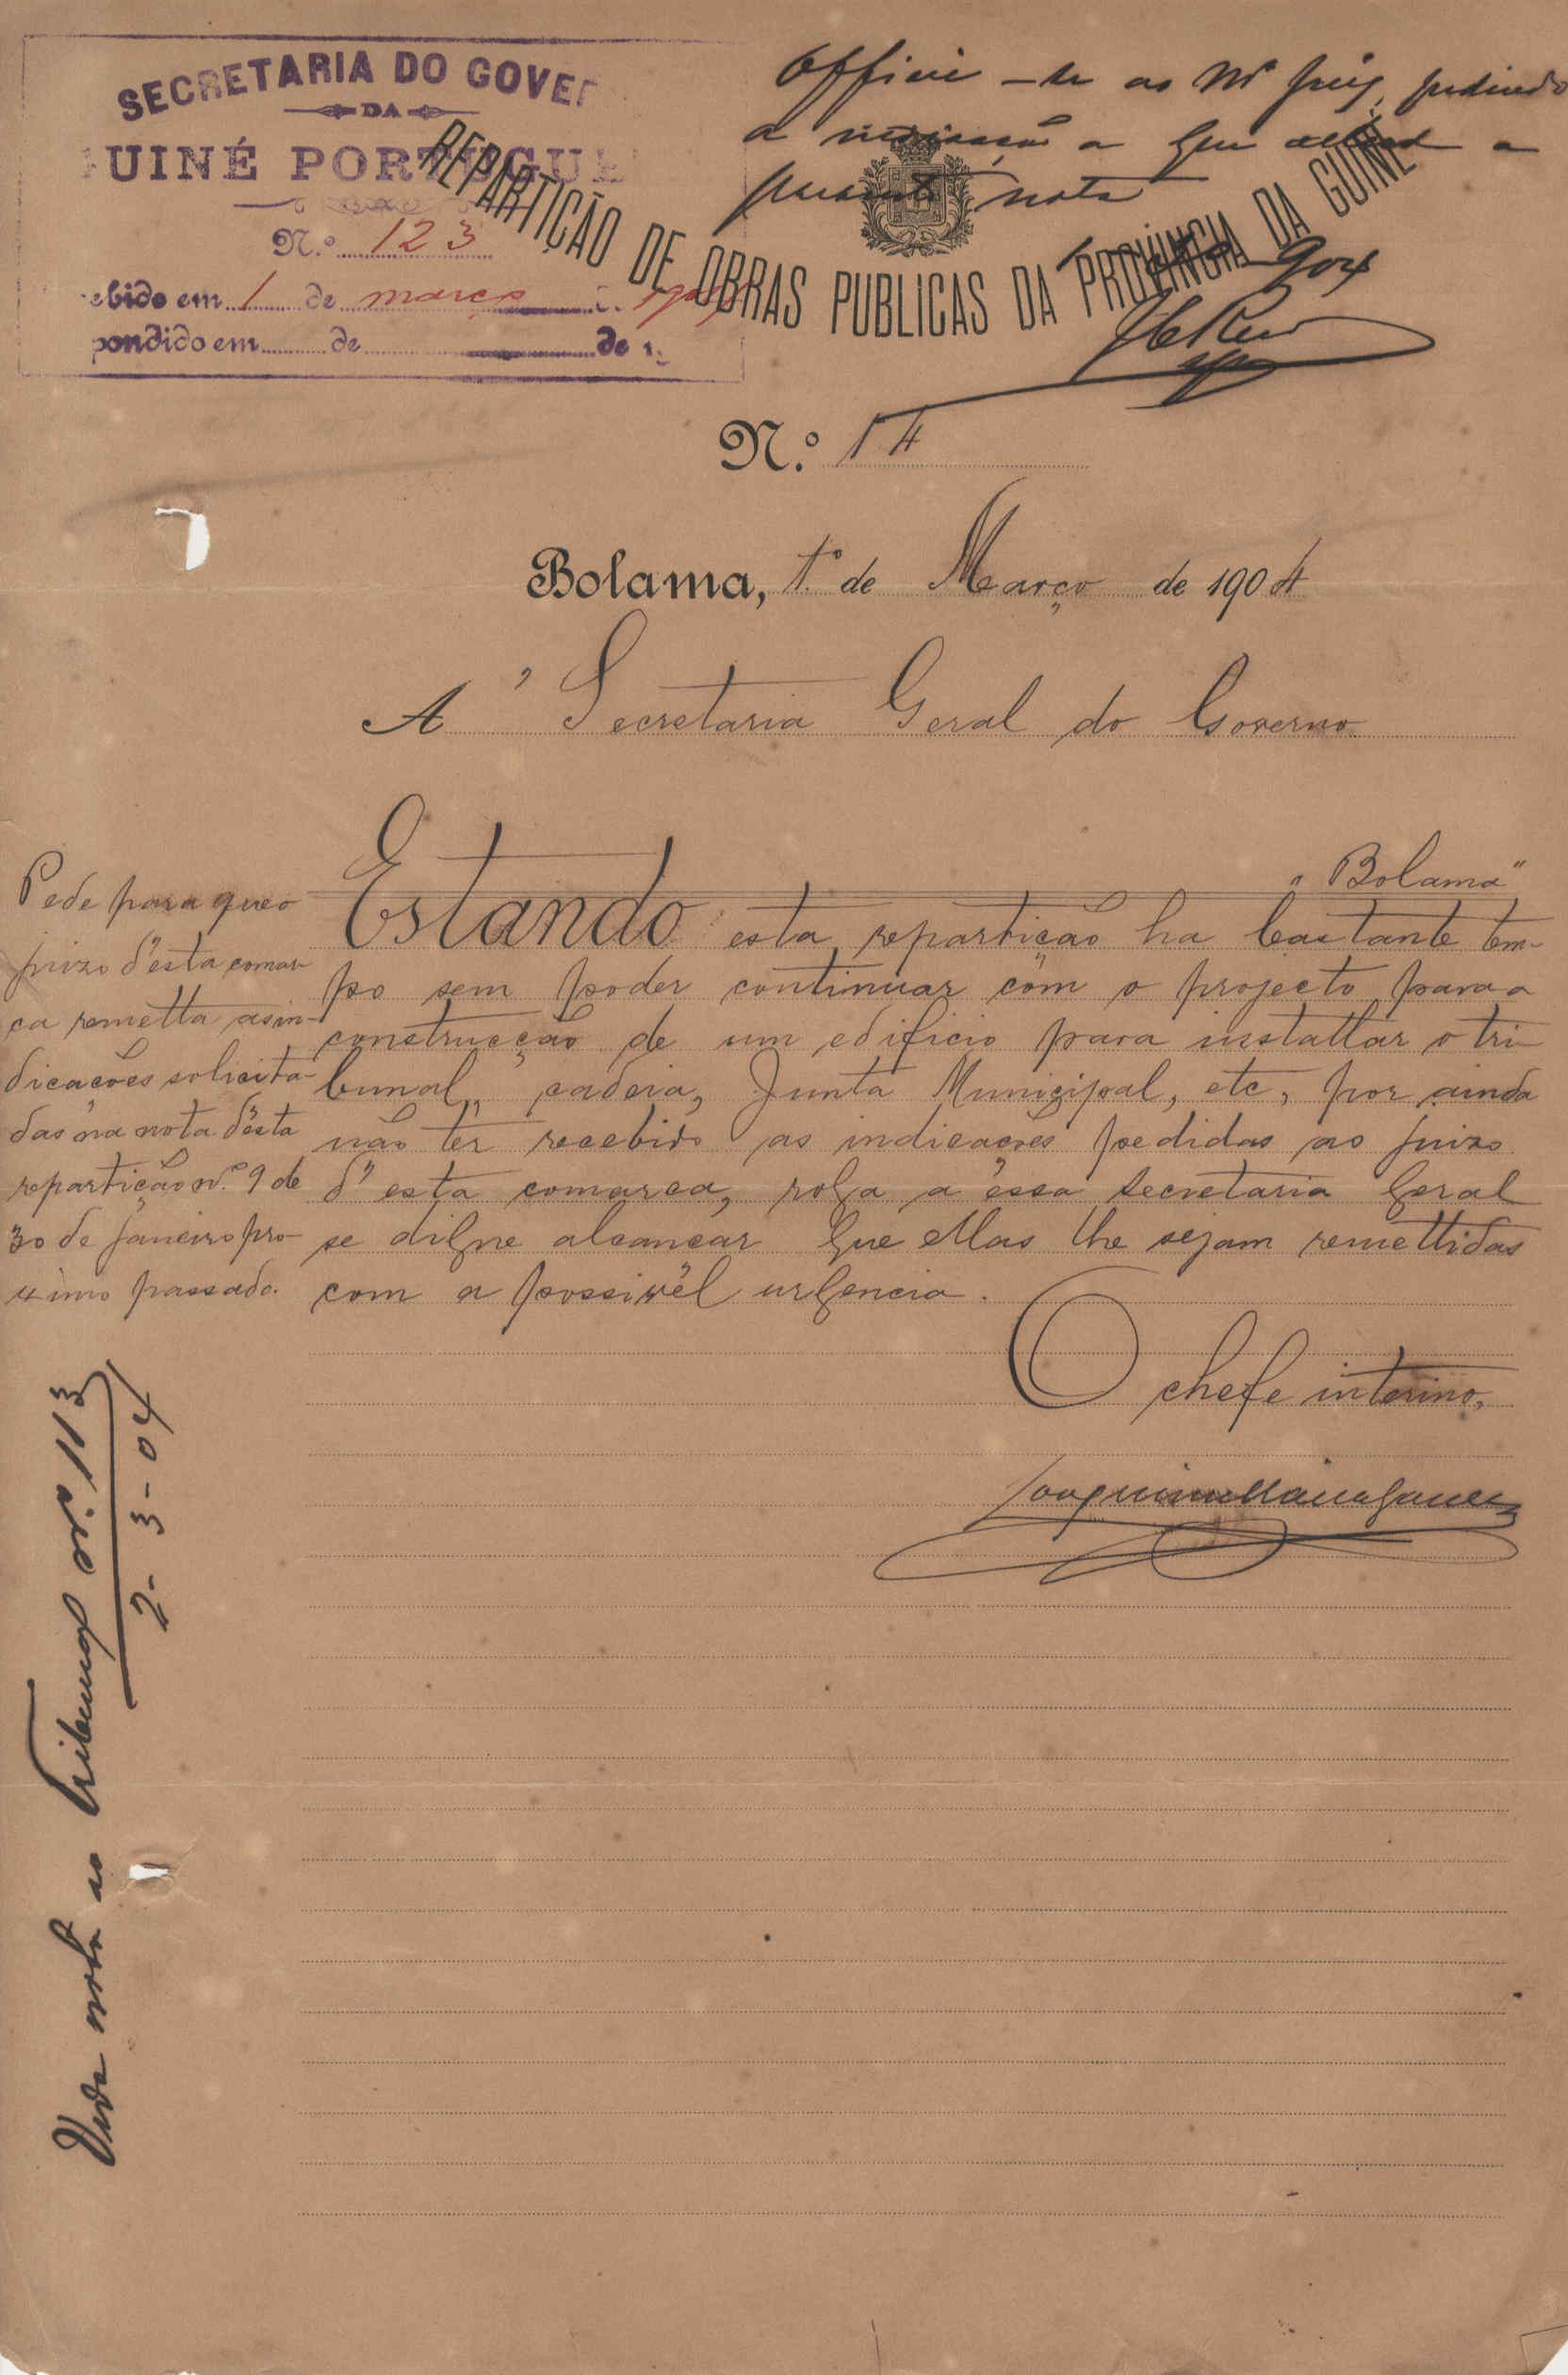 SECRETARIA DO GOVER
DA
GUINÉ PORTUGUE
N.º 123
ebido em 1 de março de 1904
pondido em de de 1
Officie-se ao Mº Juiz, pedindo
a indicação a que allude a
presente nota
904
REPARTIÇÃO DE OBRAS PUBLICAS DA PROVINCIA DA GUINÉ
N.º 14
Bolama, 1º de Março de 1904
A' Secretaria Geral do Governo
"Bolama"
Estando esta repartição ha bastante tem-
po sem poder continuar com o projecto para a
construcção de um edificio para installar o tri-
bunal, cadeia, Junta Municipal, etc, por ainda
não ter recebido as indicações pedidas ao juizo
d'esta comarca, roga a essa secretaria geral
se digne alcançar que ellas lhe sejam remettidas
com a possivel urgencia.
O chefe interino,
Pede para que o
juizo d'esta comar-
ca remetta as in-
dicações solicita-
das na nota d'esta
repartição n.º 9 de
30 de Janeiro pro-
ximo passado.
Vide nota ao Tribunal n.º 113
2-3-04